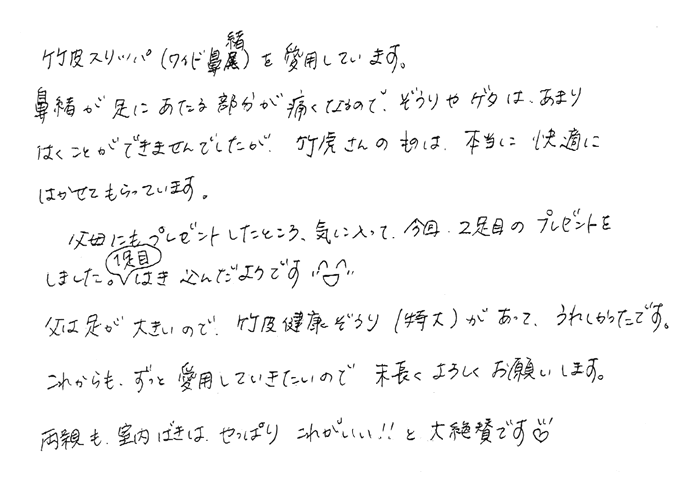 竹皮スリッパ（ワイド鼻緒）を愛用しています。
鼻緒が足にあたる部分が痛くなるので、ぞうりやゲタは、あまり
はくことができませんでしたが、竹虎さんのものは、本当に快適に
はかせてもらっています。
父母にもプレゼントしたところ、気に入って、今回、2足目のプレゼントを
しました。1足目はき込んだようです
父は足が大きいので、竹皮健康ぞうり（特大）があって、うれしかったです。
これからも、ずっと愛用していきたいので末長くよろしくお願いします。
両親も、室内ばきは、やっぱりこれがいい!!と大絶賛です